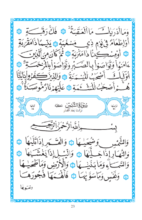 وَمَا أَدْرَىٰكَ مَا ٱلْعَقَبَةُ فَكُّ رَقَبَةٍ
أَوْ إِطْعَٰمٌ فِى يَوْمٍ ذِى مَسْغَبَةٍ يَتِيمًا ذَا مَقْرَبَةٍ
أَوْ مِسْكِينًا ذَا مَتْرَبَةٍ ثُمَّ كَانَ مِنَ ٱلَّذِينَ
ءَامَنُوا۟ وَتَوَاصَوْا۟ بِٱلصَّبْرِ وَتَوَاصَوْا۟ بِٱلْمَرْحَمَةِ
أُو۟لَٰٓئِكَ أَصْحَٰبُ ٱلْمَيْمَنَةِ وَٱلَّذِينَ كَفَرُوا۟ بِـَٔايَٰتِنَا
هُمْ أَصْحَٰبُ ٱلْمَشْـَٔمَةِ عَلَيْهِمْ نَارٌ مُّؤْصَدَةٌۢ
سُورَةُ الشَّمْسِ
بِسْمِ ٱللَّهِ ٱلرَّحْمَٰنِ ٱلرَّحِيمِ
وَٱلشَّمْسِ وَضُحَىٰهَا وَٱلْقَمَرِ إِذَا تَلَىٰهَا
وَٱلنَّهَارِ إِذَا جَلَّىٰهَا وَٱلَّيْلِ إِذَا يَغْشَىٰهَا
وَٱلسَّمَآءِ وَمَا بَنَىٰهَا وَٱلْأَرْضِ وَمَا طَحَىٰهَا
وَنَفْسٍ وَمَا سَوَّىٰهَا فَأَلْهَمَهَا فُجُورَهَا
وَتَقْوَىٰهَا